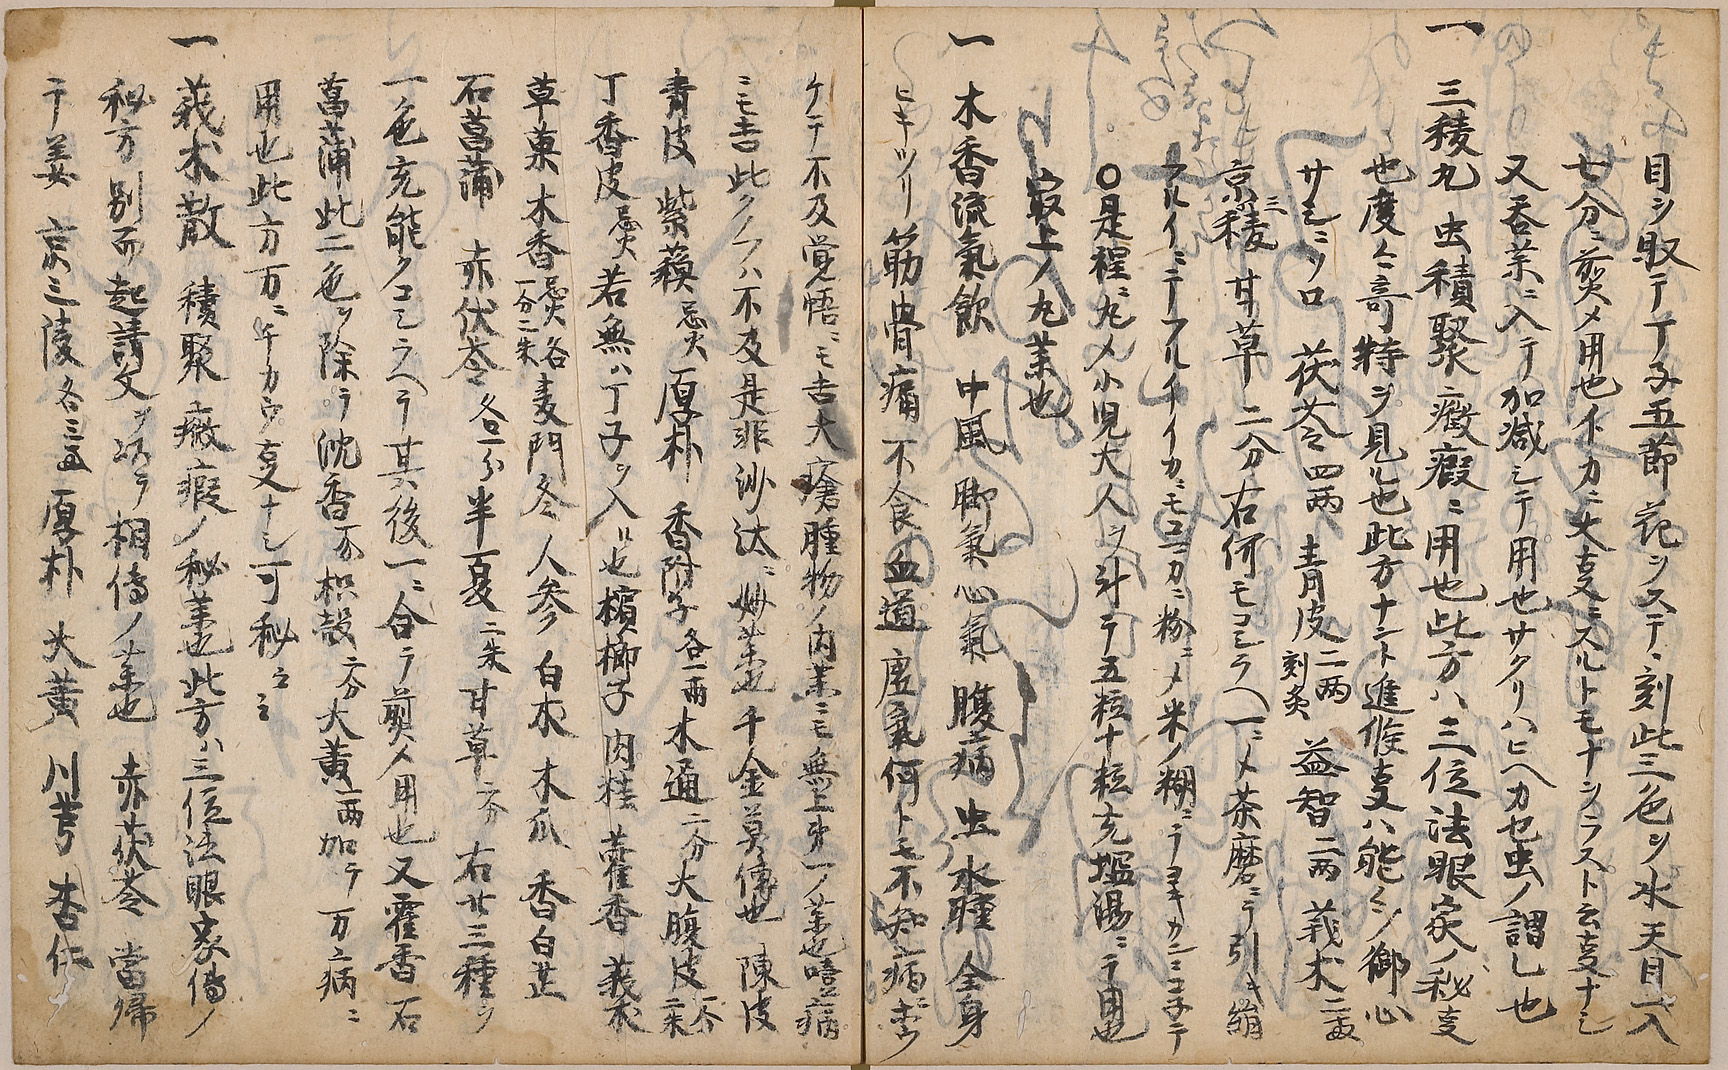 目ヲ取テ丁子五節花ヲステヽ刻此三色ヲ水天目一入
廿分ニ煎〆用也イカニ大事ニスルトモナヲラスト云事ナシ
又呑薬ニ入テ加減シテ用也サクリハヒヘカセ虫ノ謂レ也
一 三稜丸 虫積聚癥瘕ニ用也此方ハ三位法眼家ノ秘事
也度々奇特ヲ見ル也此方ナント進候事ハ能々御心
サシニソロ 茯苓四両 青皮二両刻炙 益智二両 莪朮二両
京三稜 甘草二分右何モコシラヘ一ニ〆茶磨ニテ引キ絹
フルイニテフルイイカニモコマカニ粉ニ〆米ノ糊ニテヨキカンニコネテ
〇是程ニ丸〆小児大人ヲ計テ五粒十粒充塩湯ニテ用也
最上ノ丸薬也
一 木香流氣飲 中風 脚氣 心氣 腹病 虫 水腫 全身
ヒキツリ筋骨痛 不食 血道 虚氣何トモ不知病ニ本ヲ
ケテ不及覚悟ニモ吉大瘡腫物ノ内薬ニモ無上第一ノ薬也嗜病
ニモ吉此クノハ不及是非沙汰ニ妙薬也千金莫傳也 陳皮
青皮 紫蘓忌火 厚朴 香附子各一両木通二分大腹皮一分二朱
丁香皮忌火 若無ハ丁子ヲ入ル也檳榔子 肉桂 藿香 莪朮
草菓 木香忌火各一分二朱 麦門冬 人参 白朮 木瓜 香白芷
石菖蒲 赤伏苓各一分半夏二朱甘草二分 右廿三種ヲ
一色充能々コシラヘテ其後一ニ合テ煎〆用也又霍香石
菖蒲此二色ヲ除テ沈香二分枳殻二分大黄二両加テ万之病ニ
用也此方万ニ午カウ事ナシ可秘之之
一 莪朮散 積聚 癥瘕ノ秘薬也此方ハ三位法眼家傳ノ
秘方別而起請文ヲ以テ相傳ノ薬也 赤茯苓 當帰
干姜 京三稜各三両 厚朴 大黄 川芎 杏仁